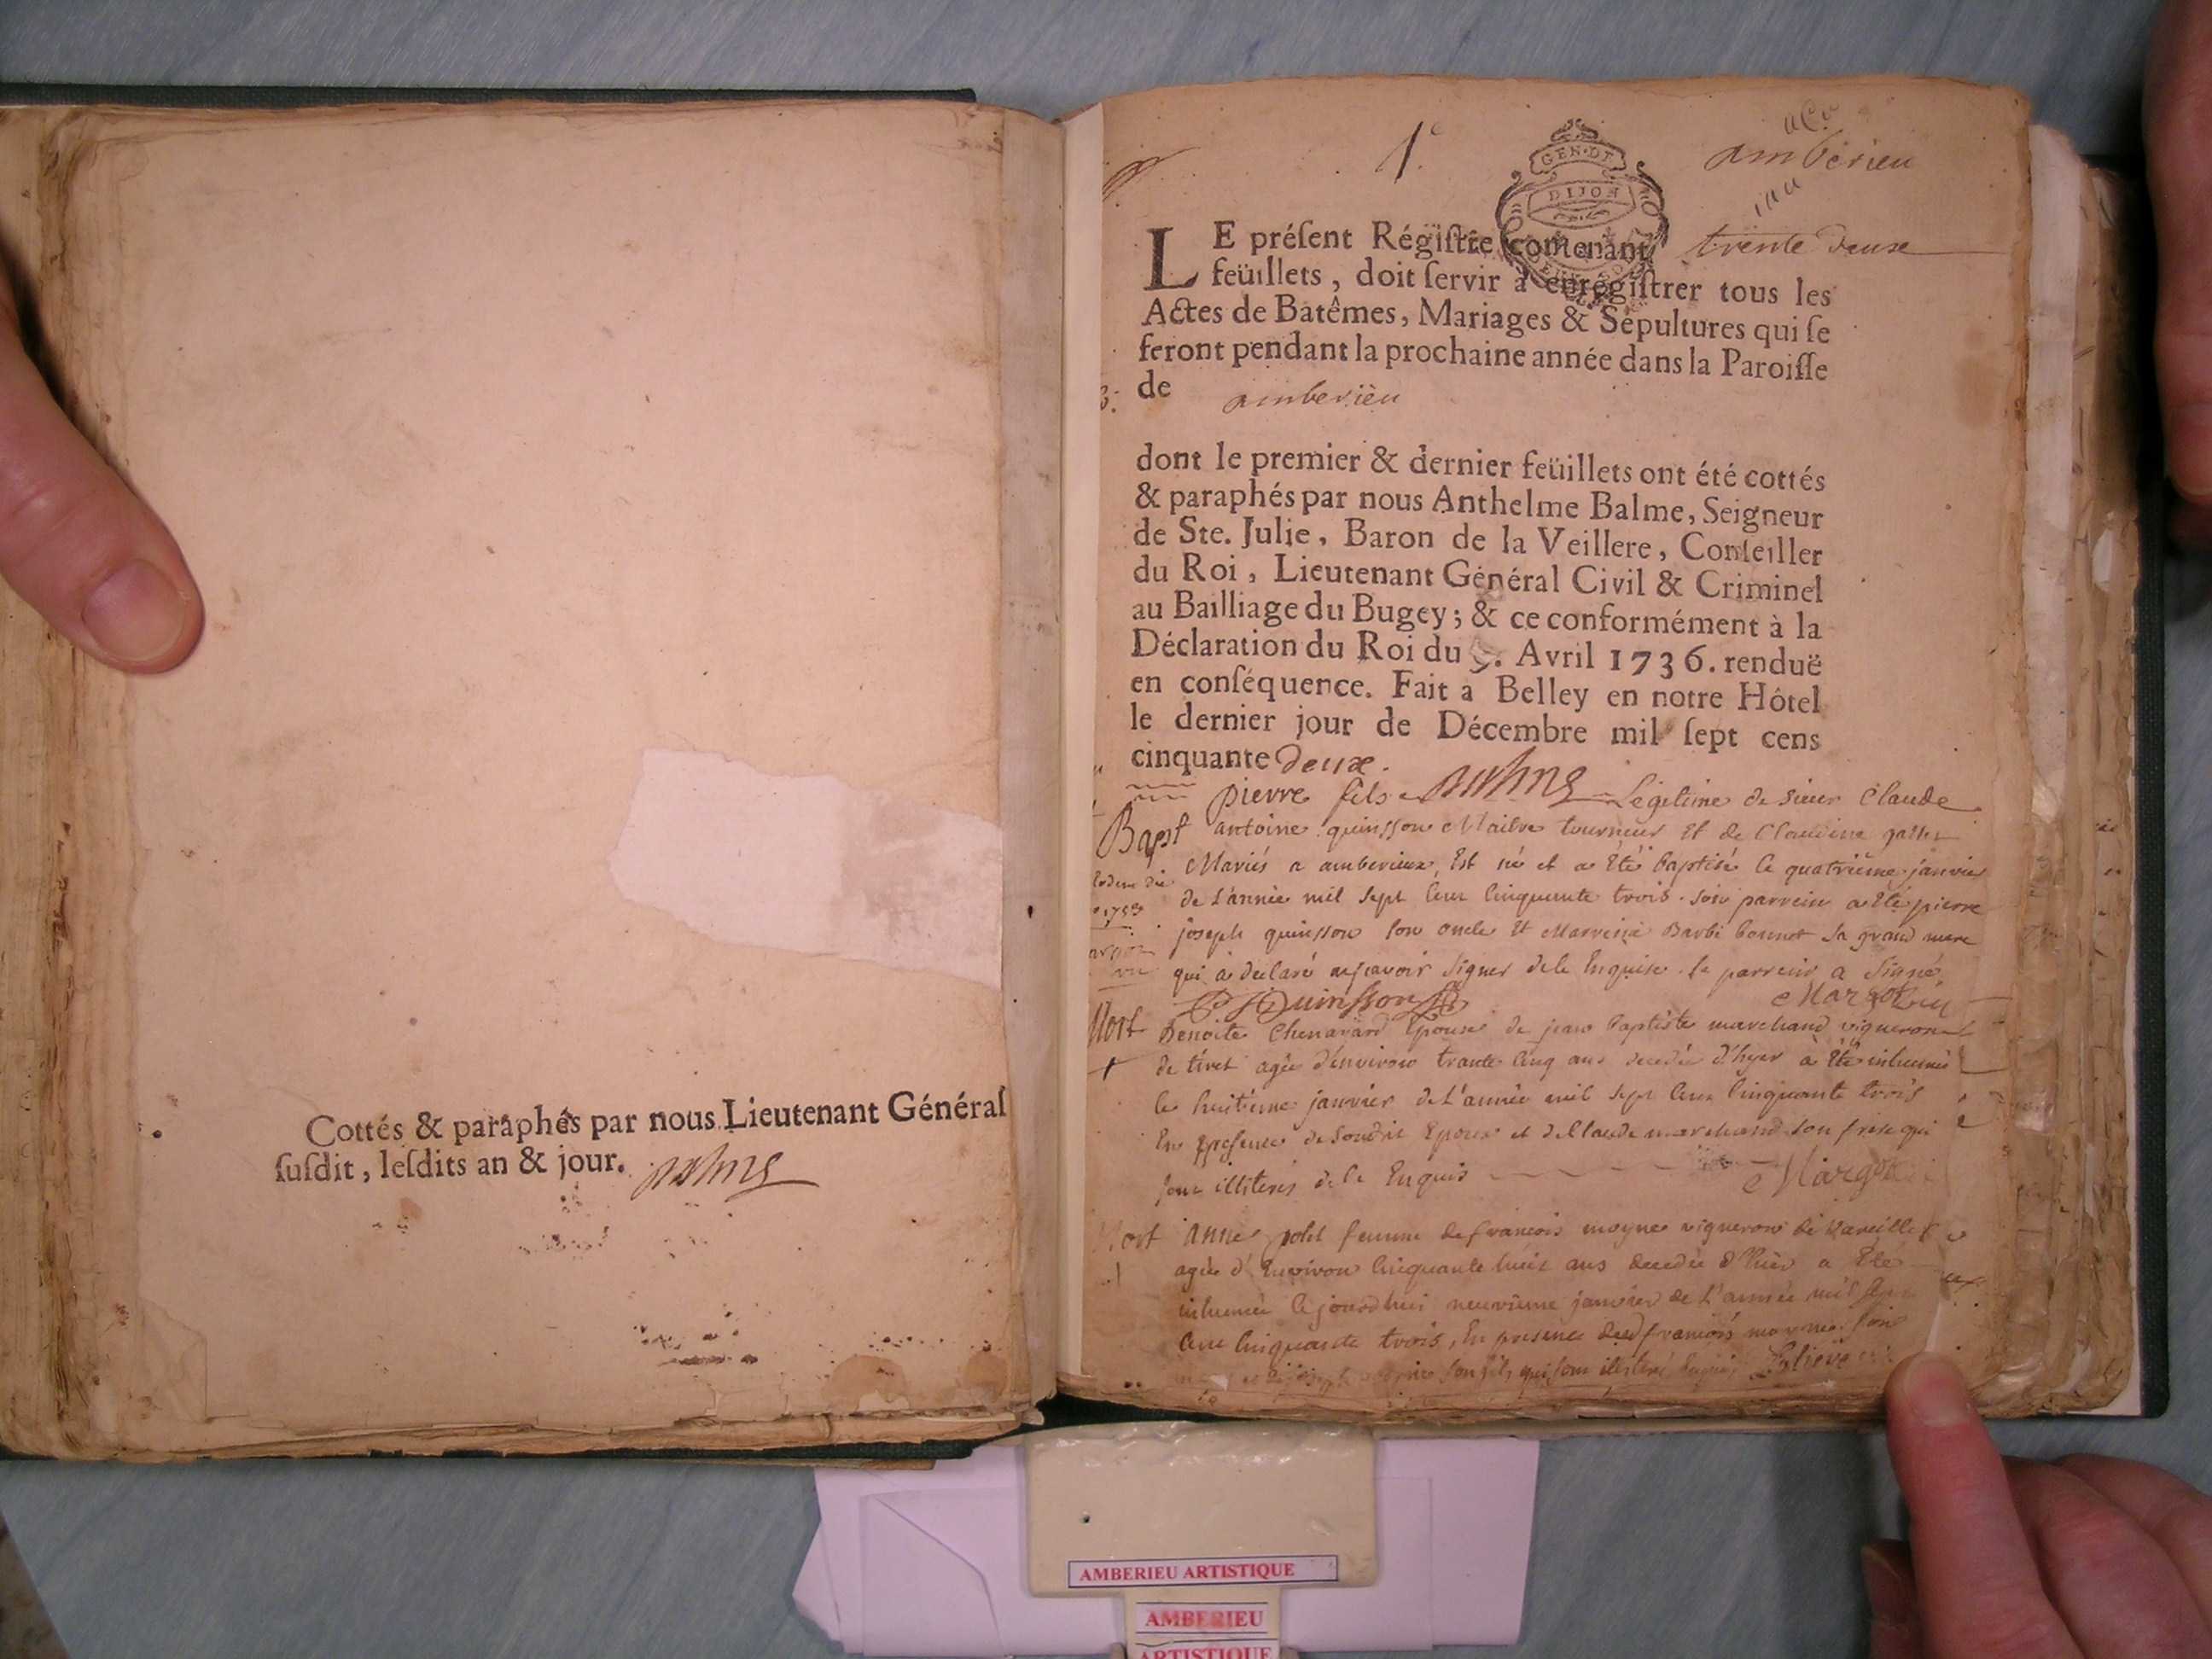 Cottés & paraphés par nous Lieutenant Général
ſuſdit, leſdits an & jour.
1.
GEN·DI
DIJON
amberieu
LE préſent Régiſtre contenant trente deux
feüillets, doit ſervir à enregiſtrer tous les
Actes de Batêmes, Mariages & Sépultures qui ſe
feront pendant la prochaine année dans la Paroiſſe
de amberieu
dont le premier & dernier feüillets ont été cottés
& paraphés par nous Anthelme Balme, Seigneur
de Ste. Julie, Baron de la Veillere, Conſeiller
du Roi, Lieutenant Général Civil & Criminel
au Bailliage du Bugey; & ce conformément à la
Déclaration du Roi du 9. Avril 1736. renduë
en conſéquence. Fait a Belley en notre Hôtel
le dernier jour de Décembre mil ſept cens
cinquante deux.
pierre fils Legitime de sieur Claude
Bapt antoine quinsson Maitre tourneur et de Claudine
Mariés a amberieux, Est né et a été baptisé le quatrième janvier
de L'année mil sept cens cinquante trois. son parrein a été pierre
1753
joseph quinsson son oncle et Marreine Barbe bonnet sa grand mere
qui a declaré ne sçavoir signer de ce Enquise. le parrein a signé
Quinsson
Mort Benoite Chenavard Epouse de jean baptiste marchand vigneron
de tiret agée d'environ trante cinq ans decedée d'hyer à été inhumée
le huitième janvier de L'année mil sept cens cinquante trois
En presence de Son dit Epoux et de Claude marchand son frere qui
sont illiterés de ce Enquis
Mort anne femme de francois moyne vigneron de Vareilles
agée d'Environ cinquante huit ans decedée d'hier a été
inhumée le jourdhui neuvième janvier de L'année mil sept
cens cinquante trois, En presence dud francois moyne
son fils qui sont
AMBERIEU ARTISTIQUE
AMBERIEU
ARTISTIQUE